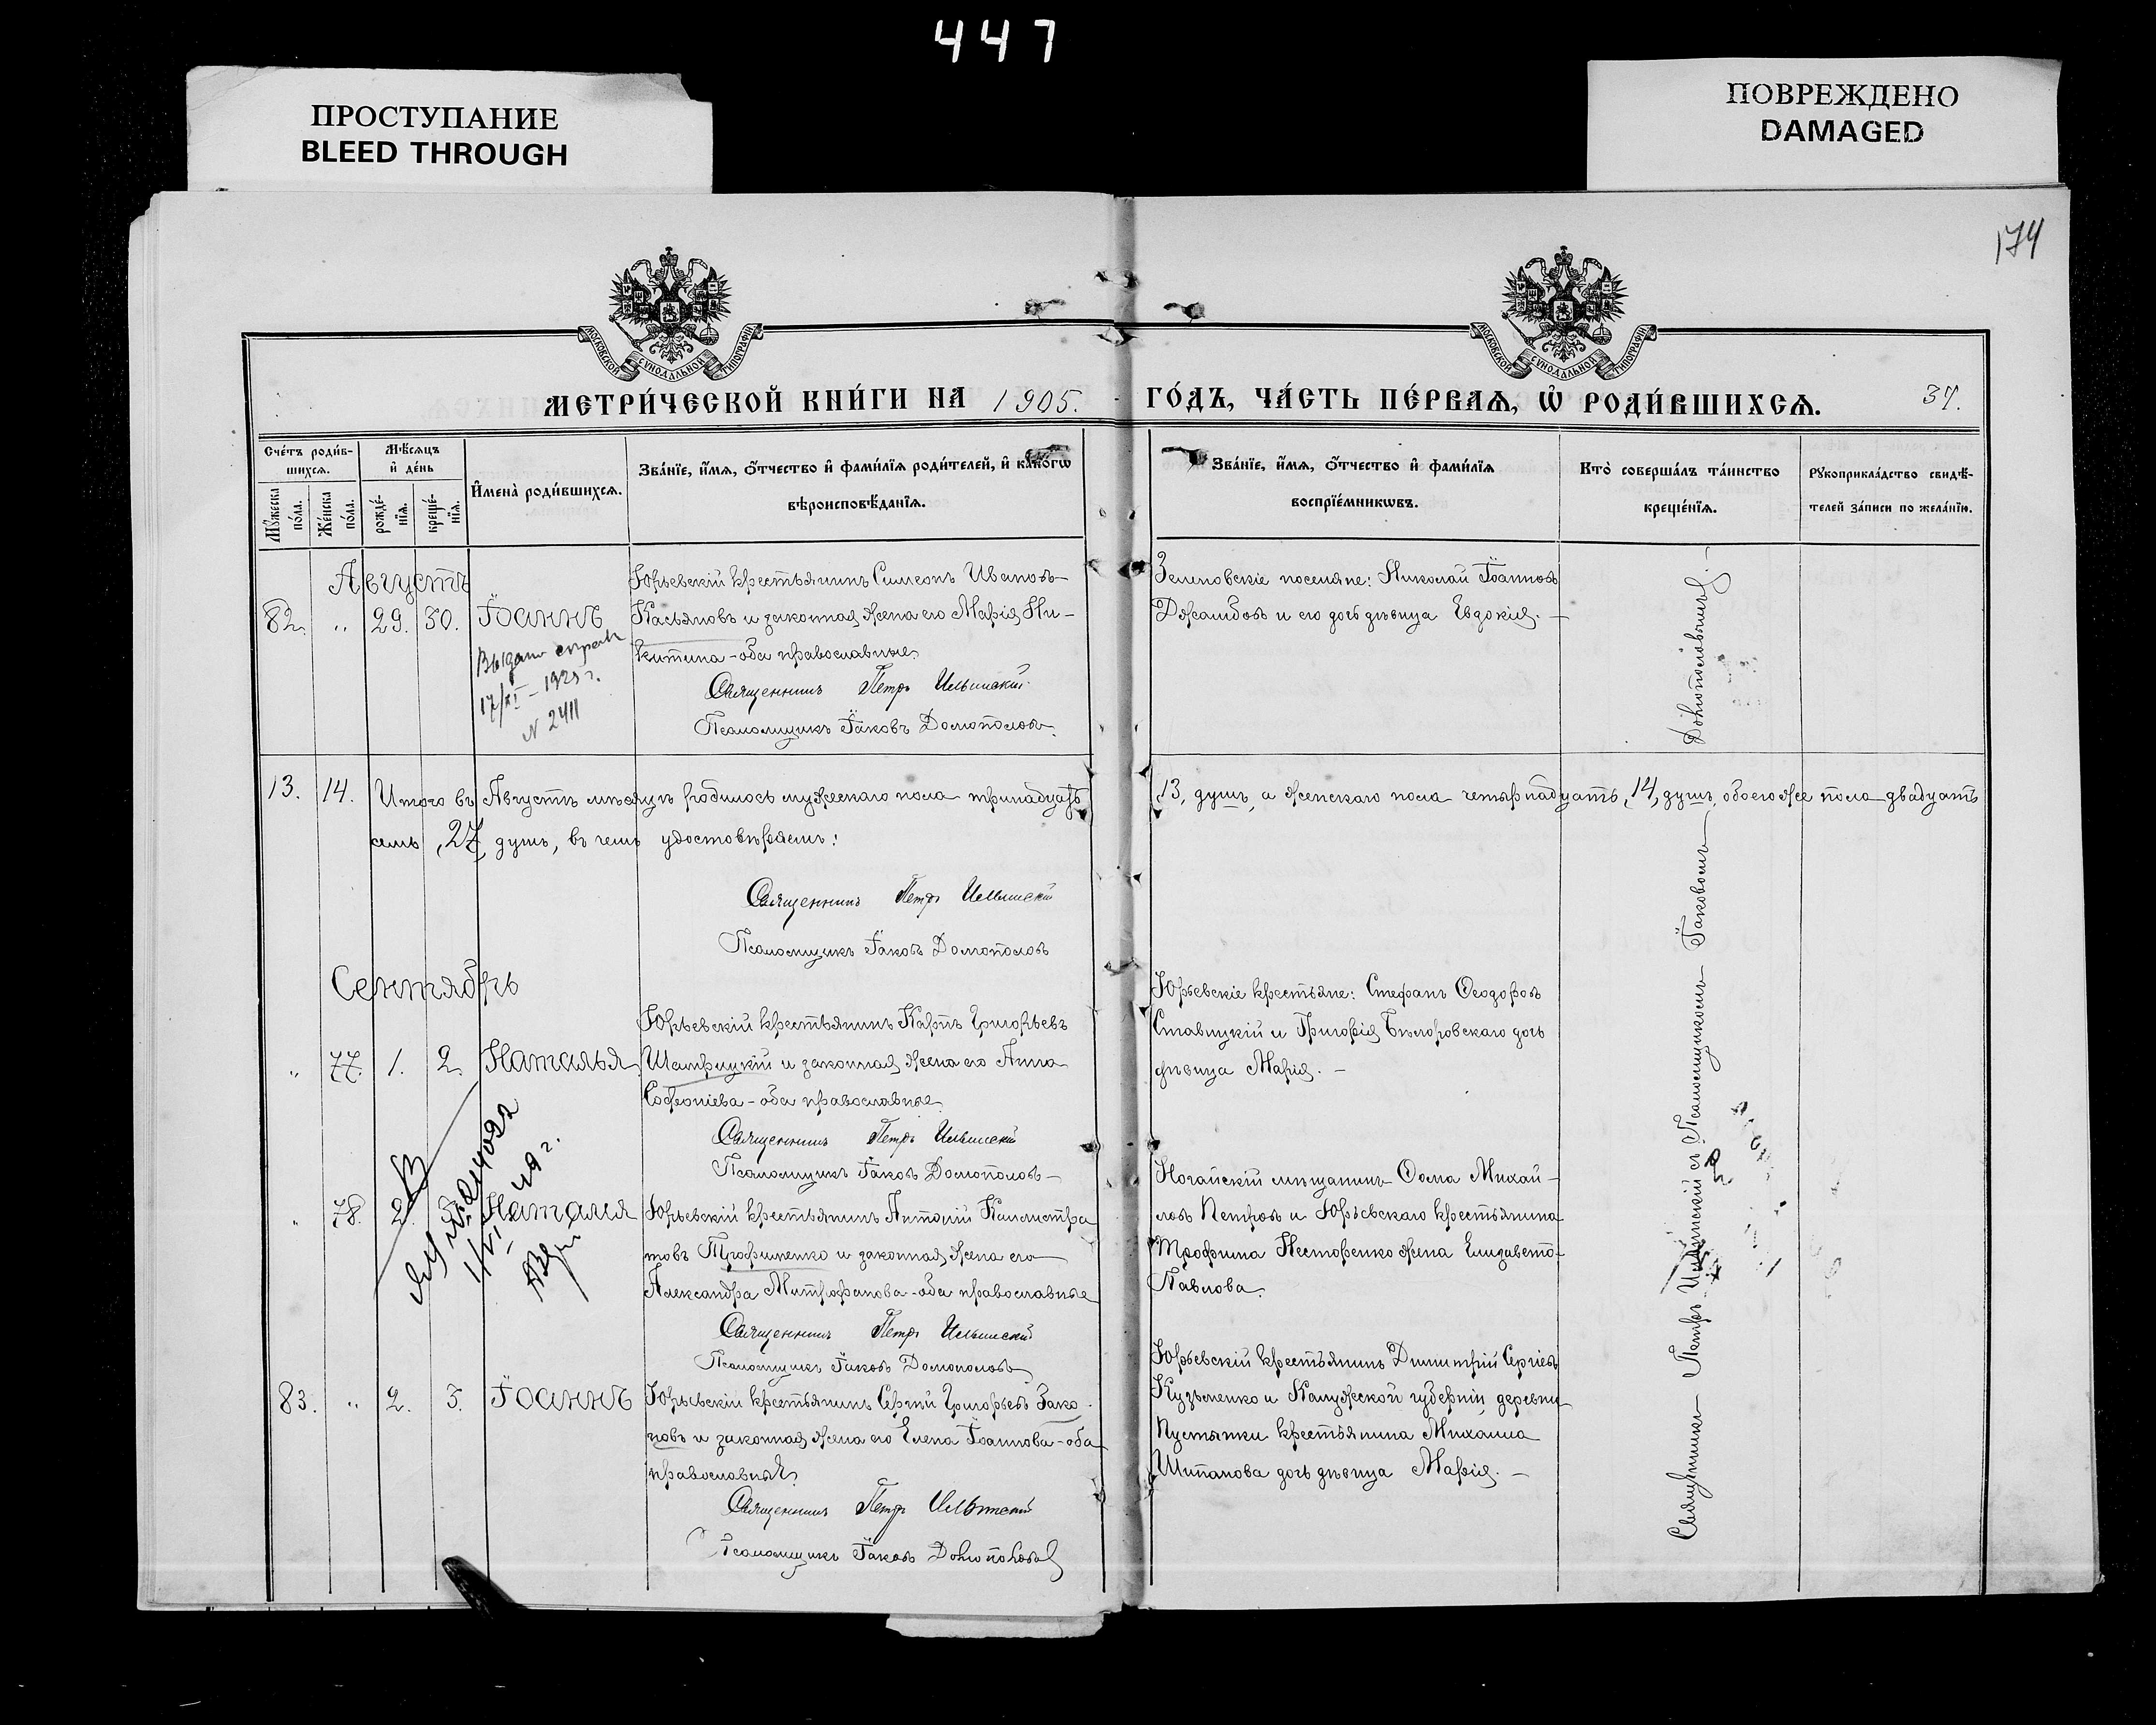 447
ПРОСТУПАНИЕ
BLEED THROUGH
ПОВРЕЖДЕНО
DAMAGED
174
МОСКОВСКОЙ СУНОДАЛЬНОЙ ТИПОГРАФІИ
МОСКОВСКОЙ СУНОДАЛЬНОЙ ТИПОГРАФІИ
МЕТРИ́ЧЕСКОЙ КНИ́ГИ НА 1905. ГО́ДЪ, ЧА́СТЬ ПЕ́РВАѦ, Ѡ҆ РОДИ́ВШИХСѦ. 37.
Сче́тъ роди́в-
шихсѧ.
Мꙋ́жеска по́ла.
Же́нска по́ла.
Мѣ́сяцъ
и҆ де́нь
рожде́-
нїѧ.
креще́-
нїѧ.
И҆мена̀ роди́вшихсѧ.
Зва́нїе, и҆́мѧ, ѻ҆́тчество и҆ фами́лїѧ роди́телей, и҆ како́гѡ
вѣроисповѣ́данїѧ.
Зва́нїе, и҆́мѧ, ѻ҆́тчество и҆ фами́лїѧ
воспрїе́мникѡвъ.
Кто̀ соверша́лъ та́инство
креще́нїѧ.
Рꙋкоприкла́дство свидѣ́-
телей за́писи по жела́нїю.
Августъ
82. " 29. 30. Іоаннъ
Юрьевскій крестьянинъ Симеонъ Ивановъ
Касьяновъ и законная жена его Марія Ни-
китина - оба православные.
Священникъ Петръ Ильинскій
Псаломщикъ Іаковъ Домополовъ.
Выдано справк
17/XI - 1925 г.
N 2411
Николай Іоанновъ
и его дочь дѣвица Евдокія. —
13. 14. Итого въ Августѣ мѣсяцѣ родилось мужескаго пола тринадцать, 13, душъ, а женскаго пола четырнадцать, 14, душъ, обоего же пола двадцать
семь, 27, душъ, въ чемъ удостовѣряемъ:
Священникъ Петръ Ильинскій
Псаломщикъ Іаковъ Домополовъ
Сентябрь
" 77. 1. 2. Наталья
Юрьевскій крестьянинъ Карпъ Григорьевъ
и законная жена его Анна
Софоніева - оба православные.
Священникъ Петръ Ильинскій
Псаломщикъ Іаковъ Домополовъ
Юрьевскіе крестьяне: Стефанъ Ѳеодоровъ
Ставицкій и Григорія Бѣлоровскаго дочь
дѣвица Марія. —
" 78. 2. Наталія
Юрьевскій крестьянинъ Антоній Каллистра
товъ Трофименко и законная жена его
Александра Митрофанова - оба православные
Священникъ Петръ Ильинскій
Псаломщикъ Іаковъ Домополовъ
Ногайскій мѣщанинъ Ѳома Михай-
ловъ Петровъ и Юрьевскаго крестьянина
Трофима Нестеренко жена Елизавета
Павлова.
83. " 2. 3. Іоаннъ
Юрьевскій крестьянинъ Сергій Григорьевъ Зако-
новъ и законная жена его Елена Іоаннова - оба
православные.
Священникъ Петръ Ильинскій
Псаломщикъ Іаковъ Домополовъ
Юрьевскій крестьянинъ Димитрій Сергіевъ
Кузьменко и Калужской губерніи, деревни
Пустынки крестьянина Михаила
Шипанова дочь дѣвица Марія. —
Священникъ Петръ Ильинскій съ Псаломщикомъ Іаковомъ Домополовымъ.